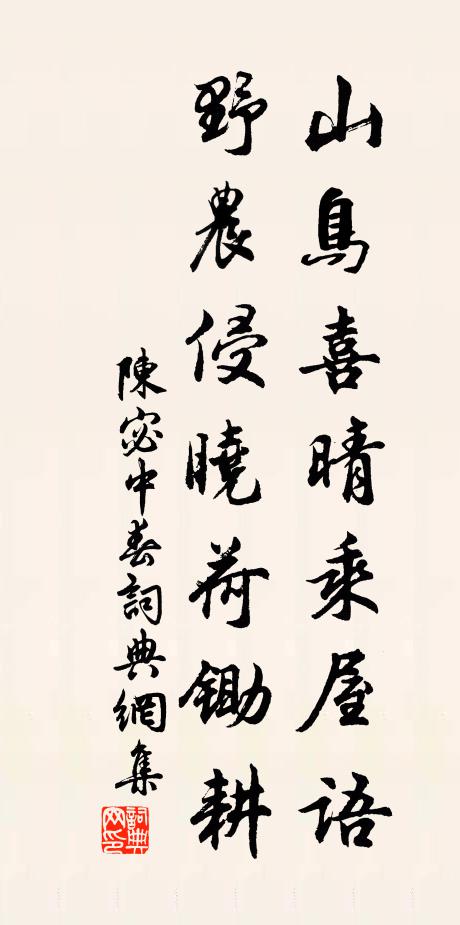 山鳥喜晴乘屋語
野農侵曉荷鋤耕
陳宓中春詞典網集
詞典網印